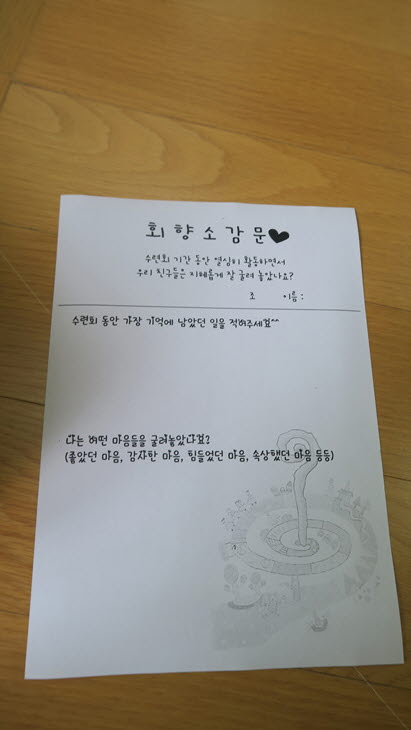 회향소감문♥
수련회 기간 동안 열심히 활동하면서
우리 친구들은 지혜롭게 잘 굴려 놓았나요?
조 이름 :
수련회 동안 가장 기억에 남았던 일을 적어주세요^^
나는 어떤 마음들을 굴려놓았나요?
(좋았던 마음, 감사한 마음, 힘들었던 마음, 속상했던 마음 등등)